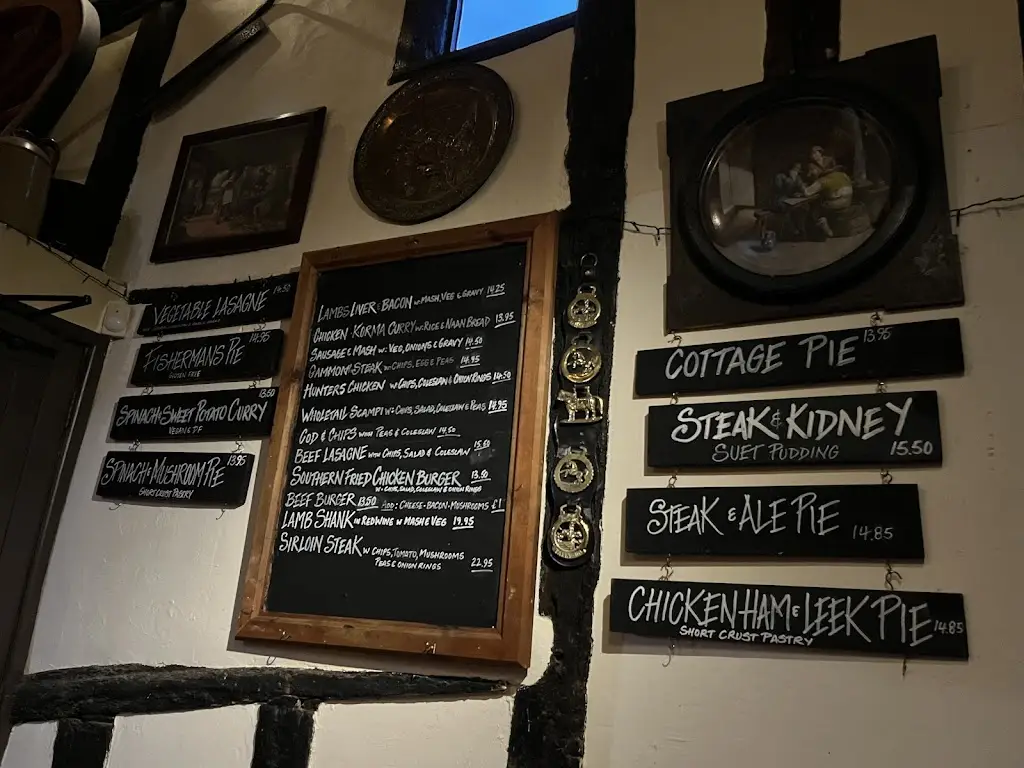 VEGETABLE LASAGNE 14.50
FISHERMANS PIE 14.95
GLUTEN FREE
SPINACH & SWEET POTATO CURRY 13.50
VEGAN & DF
SPINACH & MUSHROOM PIE 13.95
SHORTCRUST PASTRY
LAMBS LIVER & BACON W: MASH, VEG & GRAVY 14.25
CHICKEN KORMA CURRY W: RICE & NAAN BREAD 13.95
SAUSAGE & MASH W: VEG, ONIONS & GRAVY 14.50
GAMMON STEAK W: CHIPS, EGG & PEAS 14.95
HUNTERS CHICKEN W: CHIPS, COLESLAW & ONION RINGS 14.50
WHOLETAIL SCAMPI W: CHIPS, SALAD, COLESLAW & PEAS 14.95
COD & CHIPS WITH PEAS & COLESLAW 14.50
BEEF LASAGNE W: CHIPS, SALAD & COLESLAW 15.60
SOUTHERN FRIED CHICKEN BURGER 13.50
W: CHIPS, SALAD, COLESLAW & ONION RINGS
BEEF BURGER 13.50 ADD: CHEESE-BACON-MUSHROOMS £1
LAMB SHANK IN REDWINE W MASH & VEG 19.95
SIRLOIN STEAK W CHIPS, TOMATO, MUSHROOMS
PEAS & ONION RINGS 22.95
COTTAGE PIE 13.95
STEAK & KIDNEY
SUET PUDDING 15.50
STEAK & ALE PIE 14.85
CHICKEN HAM & LEEK PIE 14.85
SHORT CRUST PASTRY